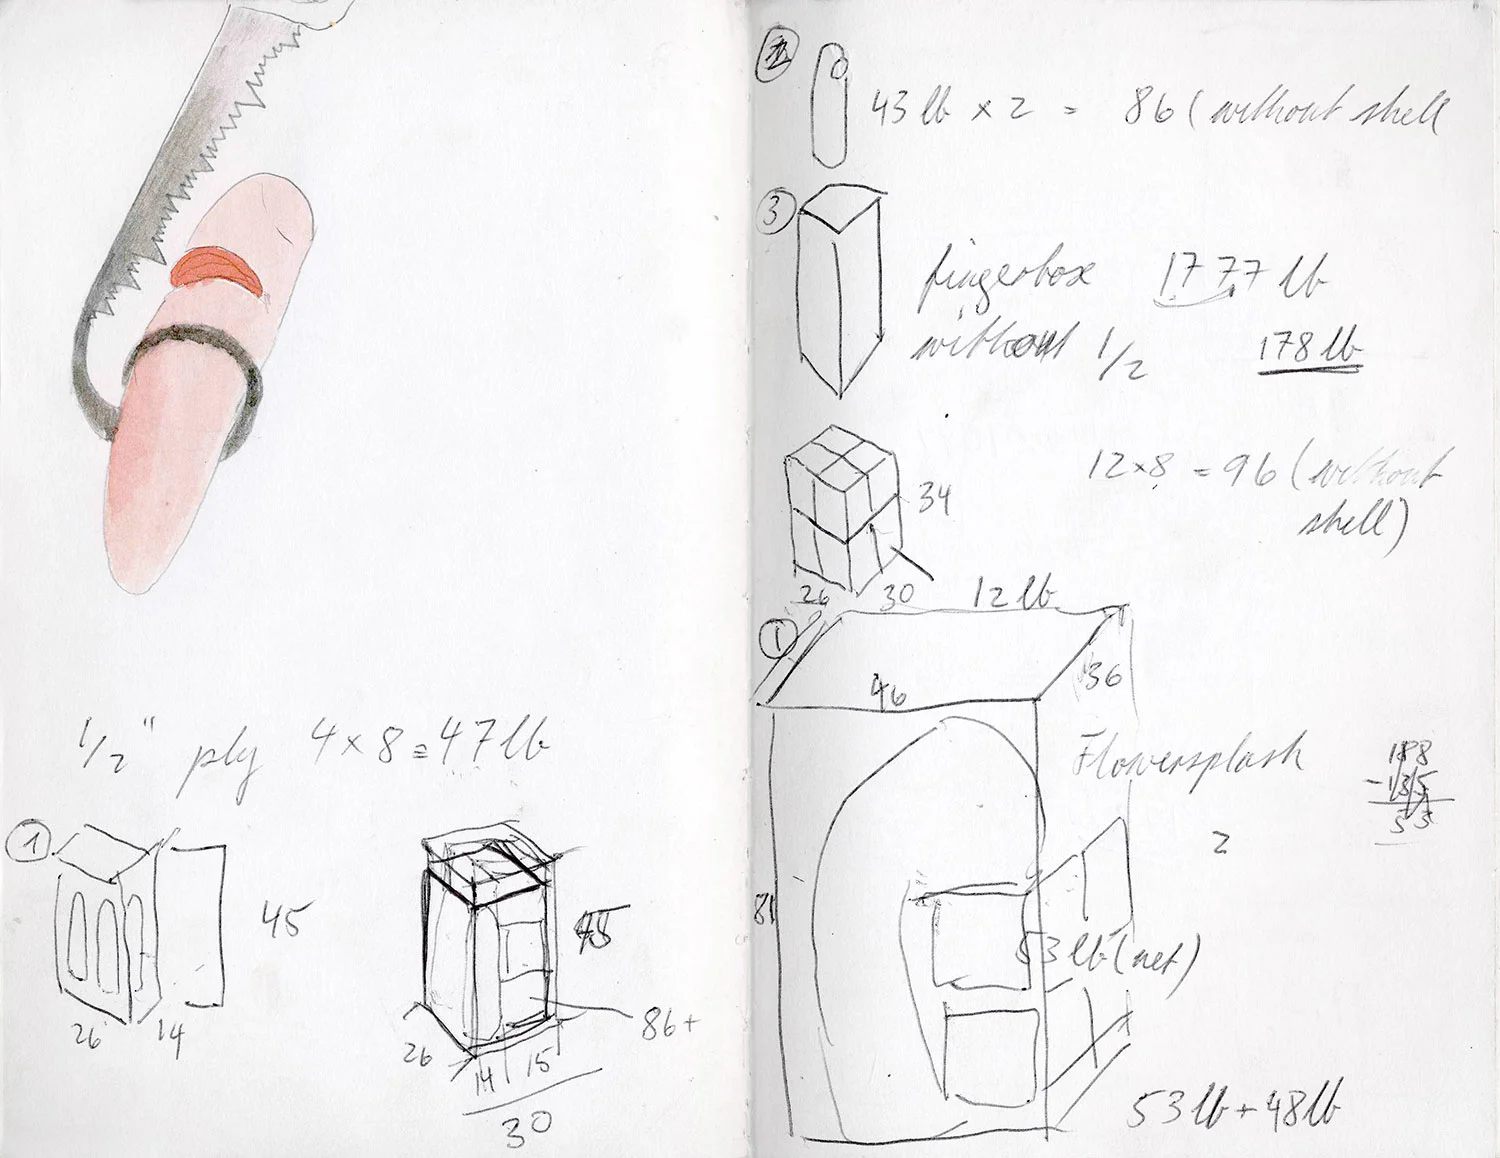 1/2" ply 4 x 8 ≅ 47 lb
1
45
26 14
45
86+
26
14 15
30
2
43 lb x 2 = 86 (without shell
3
fingerbox 1777 lb
without 1/2 178 lb
12x8 = 96 (without
shell)
34
26 30 12 lb
1
46 36
Flowersplash
188
- 135
53
2
81
53 lb (net)
53 lb + 48 lb